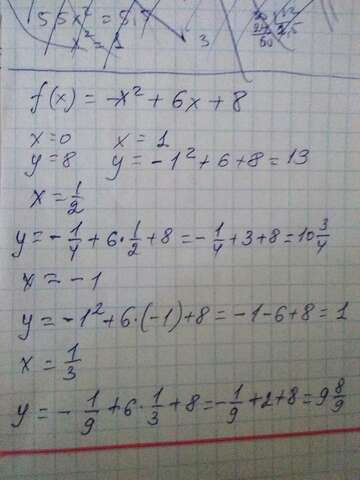 3
f(x) = -x² + 6x + 8
x=0 x=1
y=8 y=-1²+6+8=13
x=1/2
y=-1/4+6·1/2+8=-1/4+3+8=10 3/4
x=-1
y=-1²+6·(-1)+8=-1-6+8=1
x=1/3
y=-1/9+6·1/3+8=-1/9+2+8=9 8/9